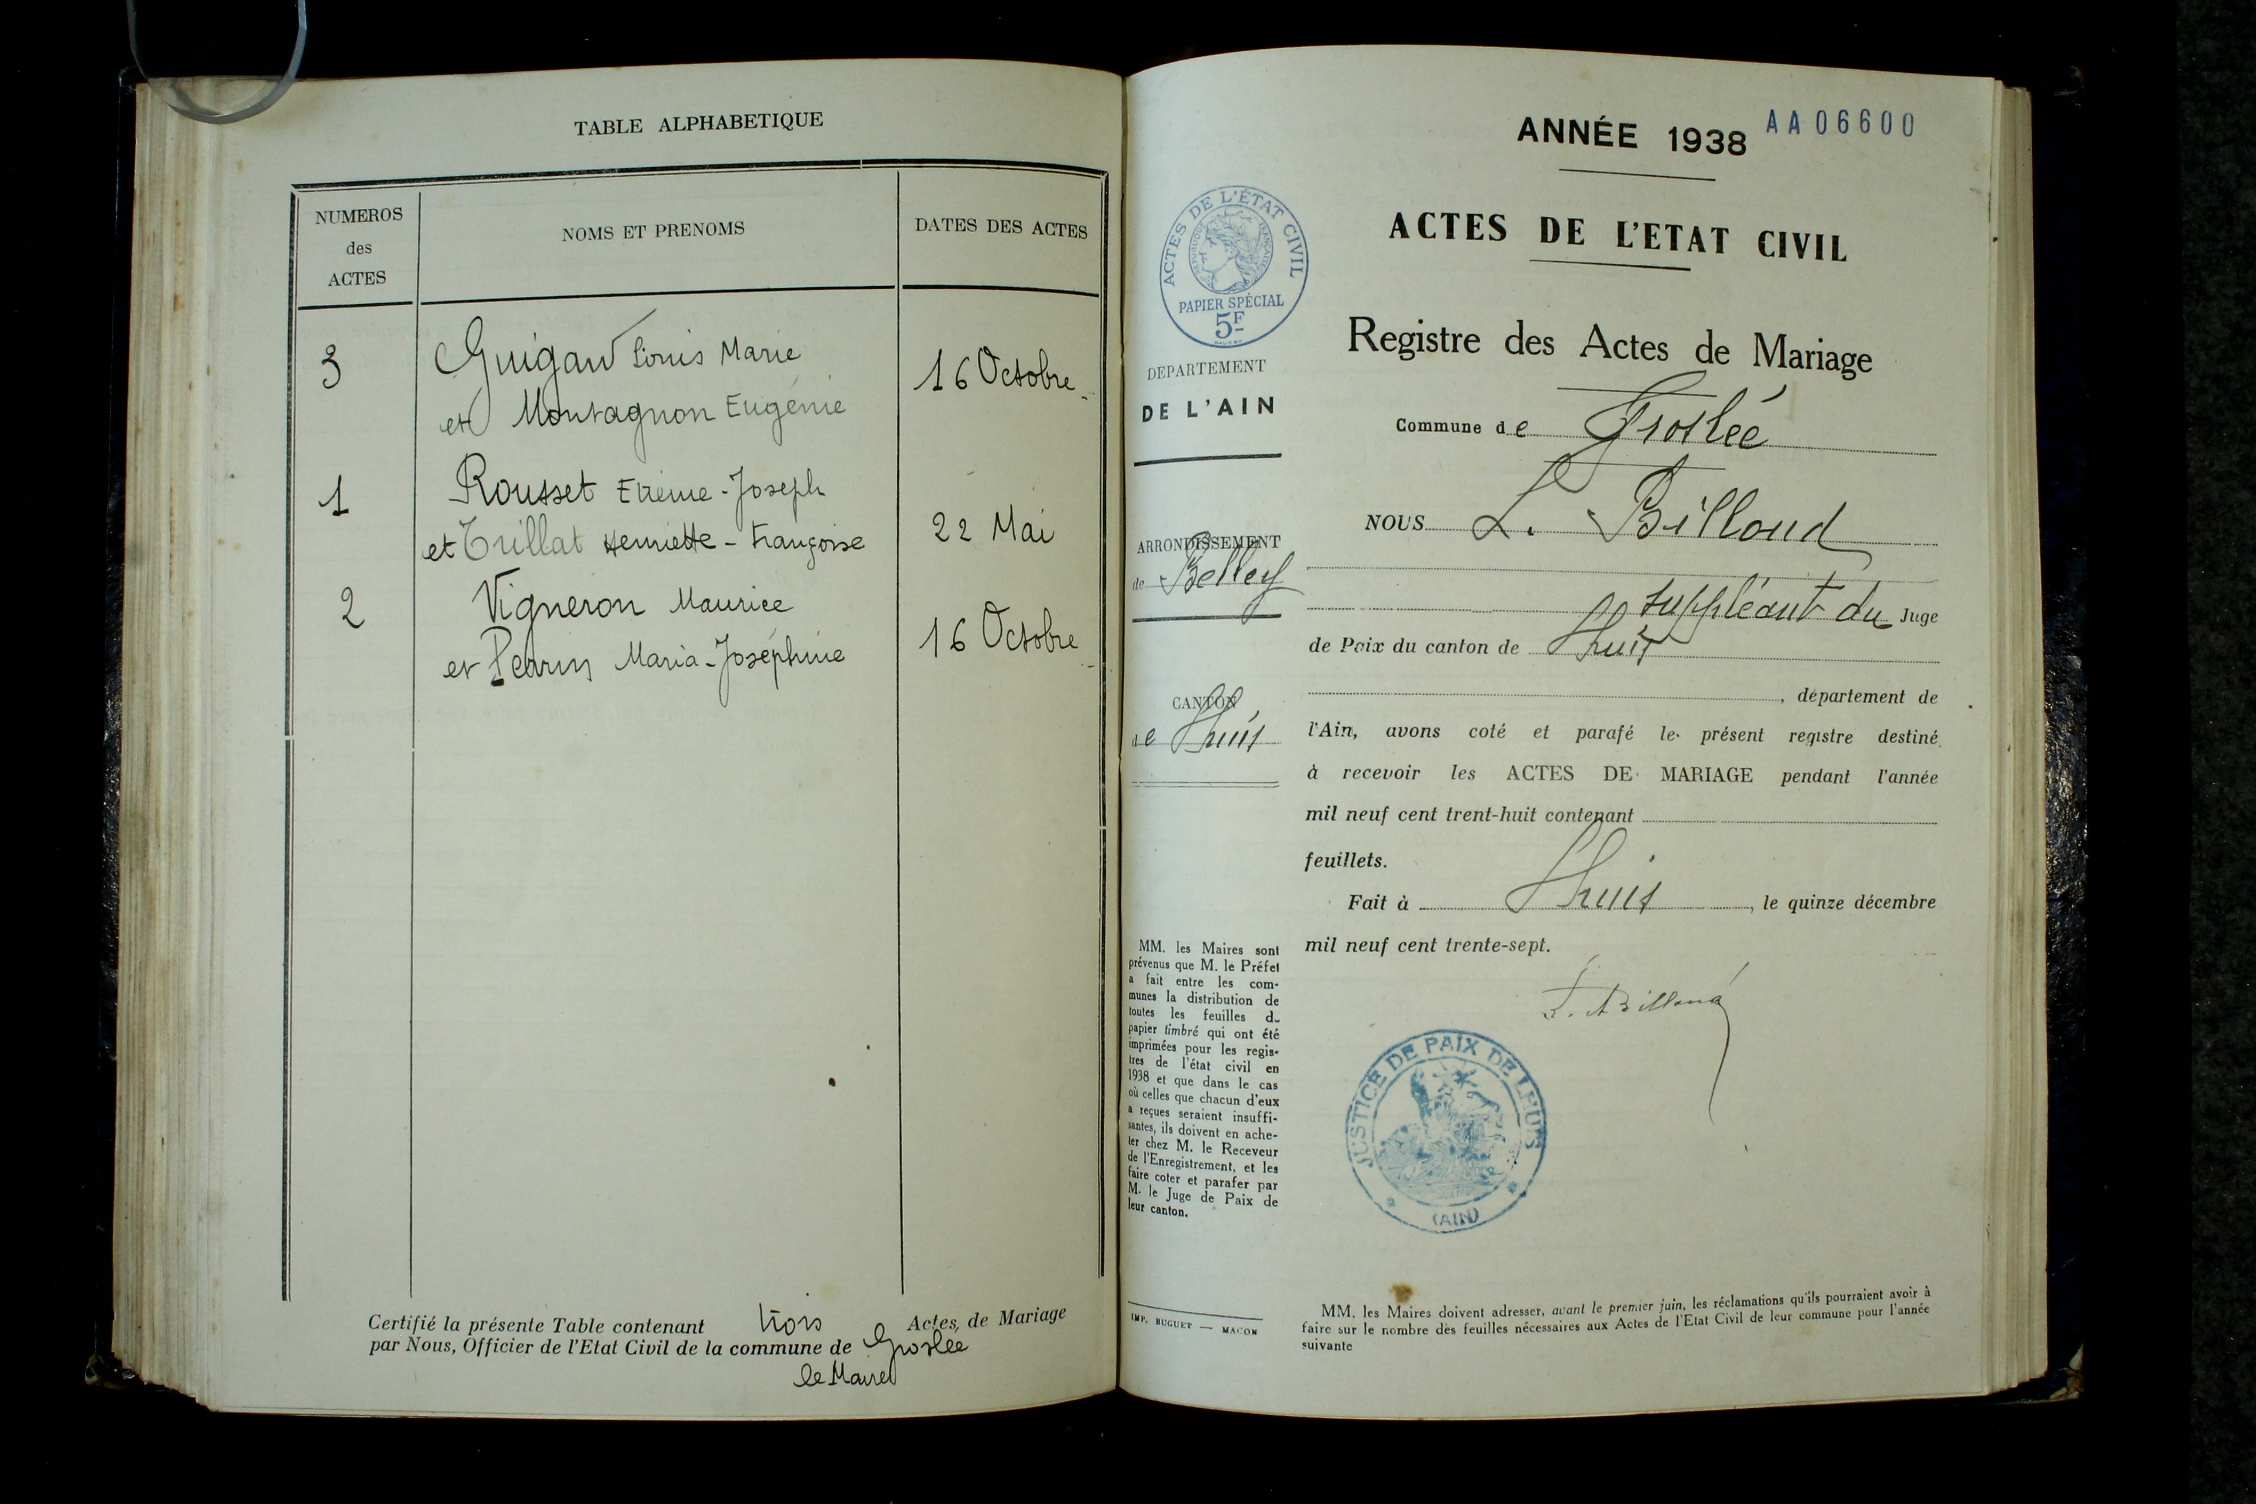 TABLE ALPHABETIQUE
NUMEROS
des
ACTES
NOMS ET PRENOMS
DATES DES ACTES
3
Guigard Louis Marie
et Montagnon Eugénie
16 Octobre
1
Rousset Etienne-Joseph
et Trillat Henriette-Françoise
22 Mai
2
Vigneron Maurice
et Perrin Maria-Joséphine
16 Octobre
Certifié la présente Table contenant trois Actes, de Mariage
par Nous, Officier de l'Etat Civil de la commune de Groslée
le Maire
ANNÉE 1938
AA06600
ACTES DE L'ETAT CIVIL
ACTES DE L'ÉTAT CIVIL
RÉPUBLIQUE FRANÇAISE
PAPIER SPÉCIAL
5F
DEPARTEMENT
DE L'AIN
ARRONDISSEMENT
de Belley
CANTON
de Lhuis
MM. les Maires sont
prévenus que M. le Préfet
a fait entre les com-
munes la distribution de
toutes les feuilles d
papier timbré qui ont été
imprimées pour les regis-
tres de l'état civil en
1938 et que dans le cas
où celles que chacun d'eux
a reçues seraient insuffi-
santes, ils doivent en ache-
ter chez M. le Receveur
de l'Enregistrement, et les
faire coter et parafer par
M. le Juge de Paix de
leur canton.
IMP. BUGUET — MACON
Registre des Actes de Mariage
Commune de Groslée
NOUS L. Billoud
suppléant du Juge
de Paix du canton de Lhuis
, département de
l'Ain, avons coté et parafé le présent registre destiné
à recevoir les ACTES DE MARIAGE pendant l'année
mil neuf cent trent-huit contenant
feuillets.
Fait à Lhuis, le quinze décembre
mil neuf cent trente-sept.
L. Billoud
JUSTICE DE PAIX DE LHUIS
(AIN)
MM. les Maires doivent adresser, avant le premier juin, les réclamations qu'ils pourraient avoir à
faire sur le nombre des feuilles nécessaires aux Actes de l'Etat Civil de leur commune pour l'année
suivante